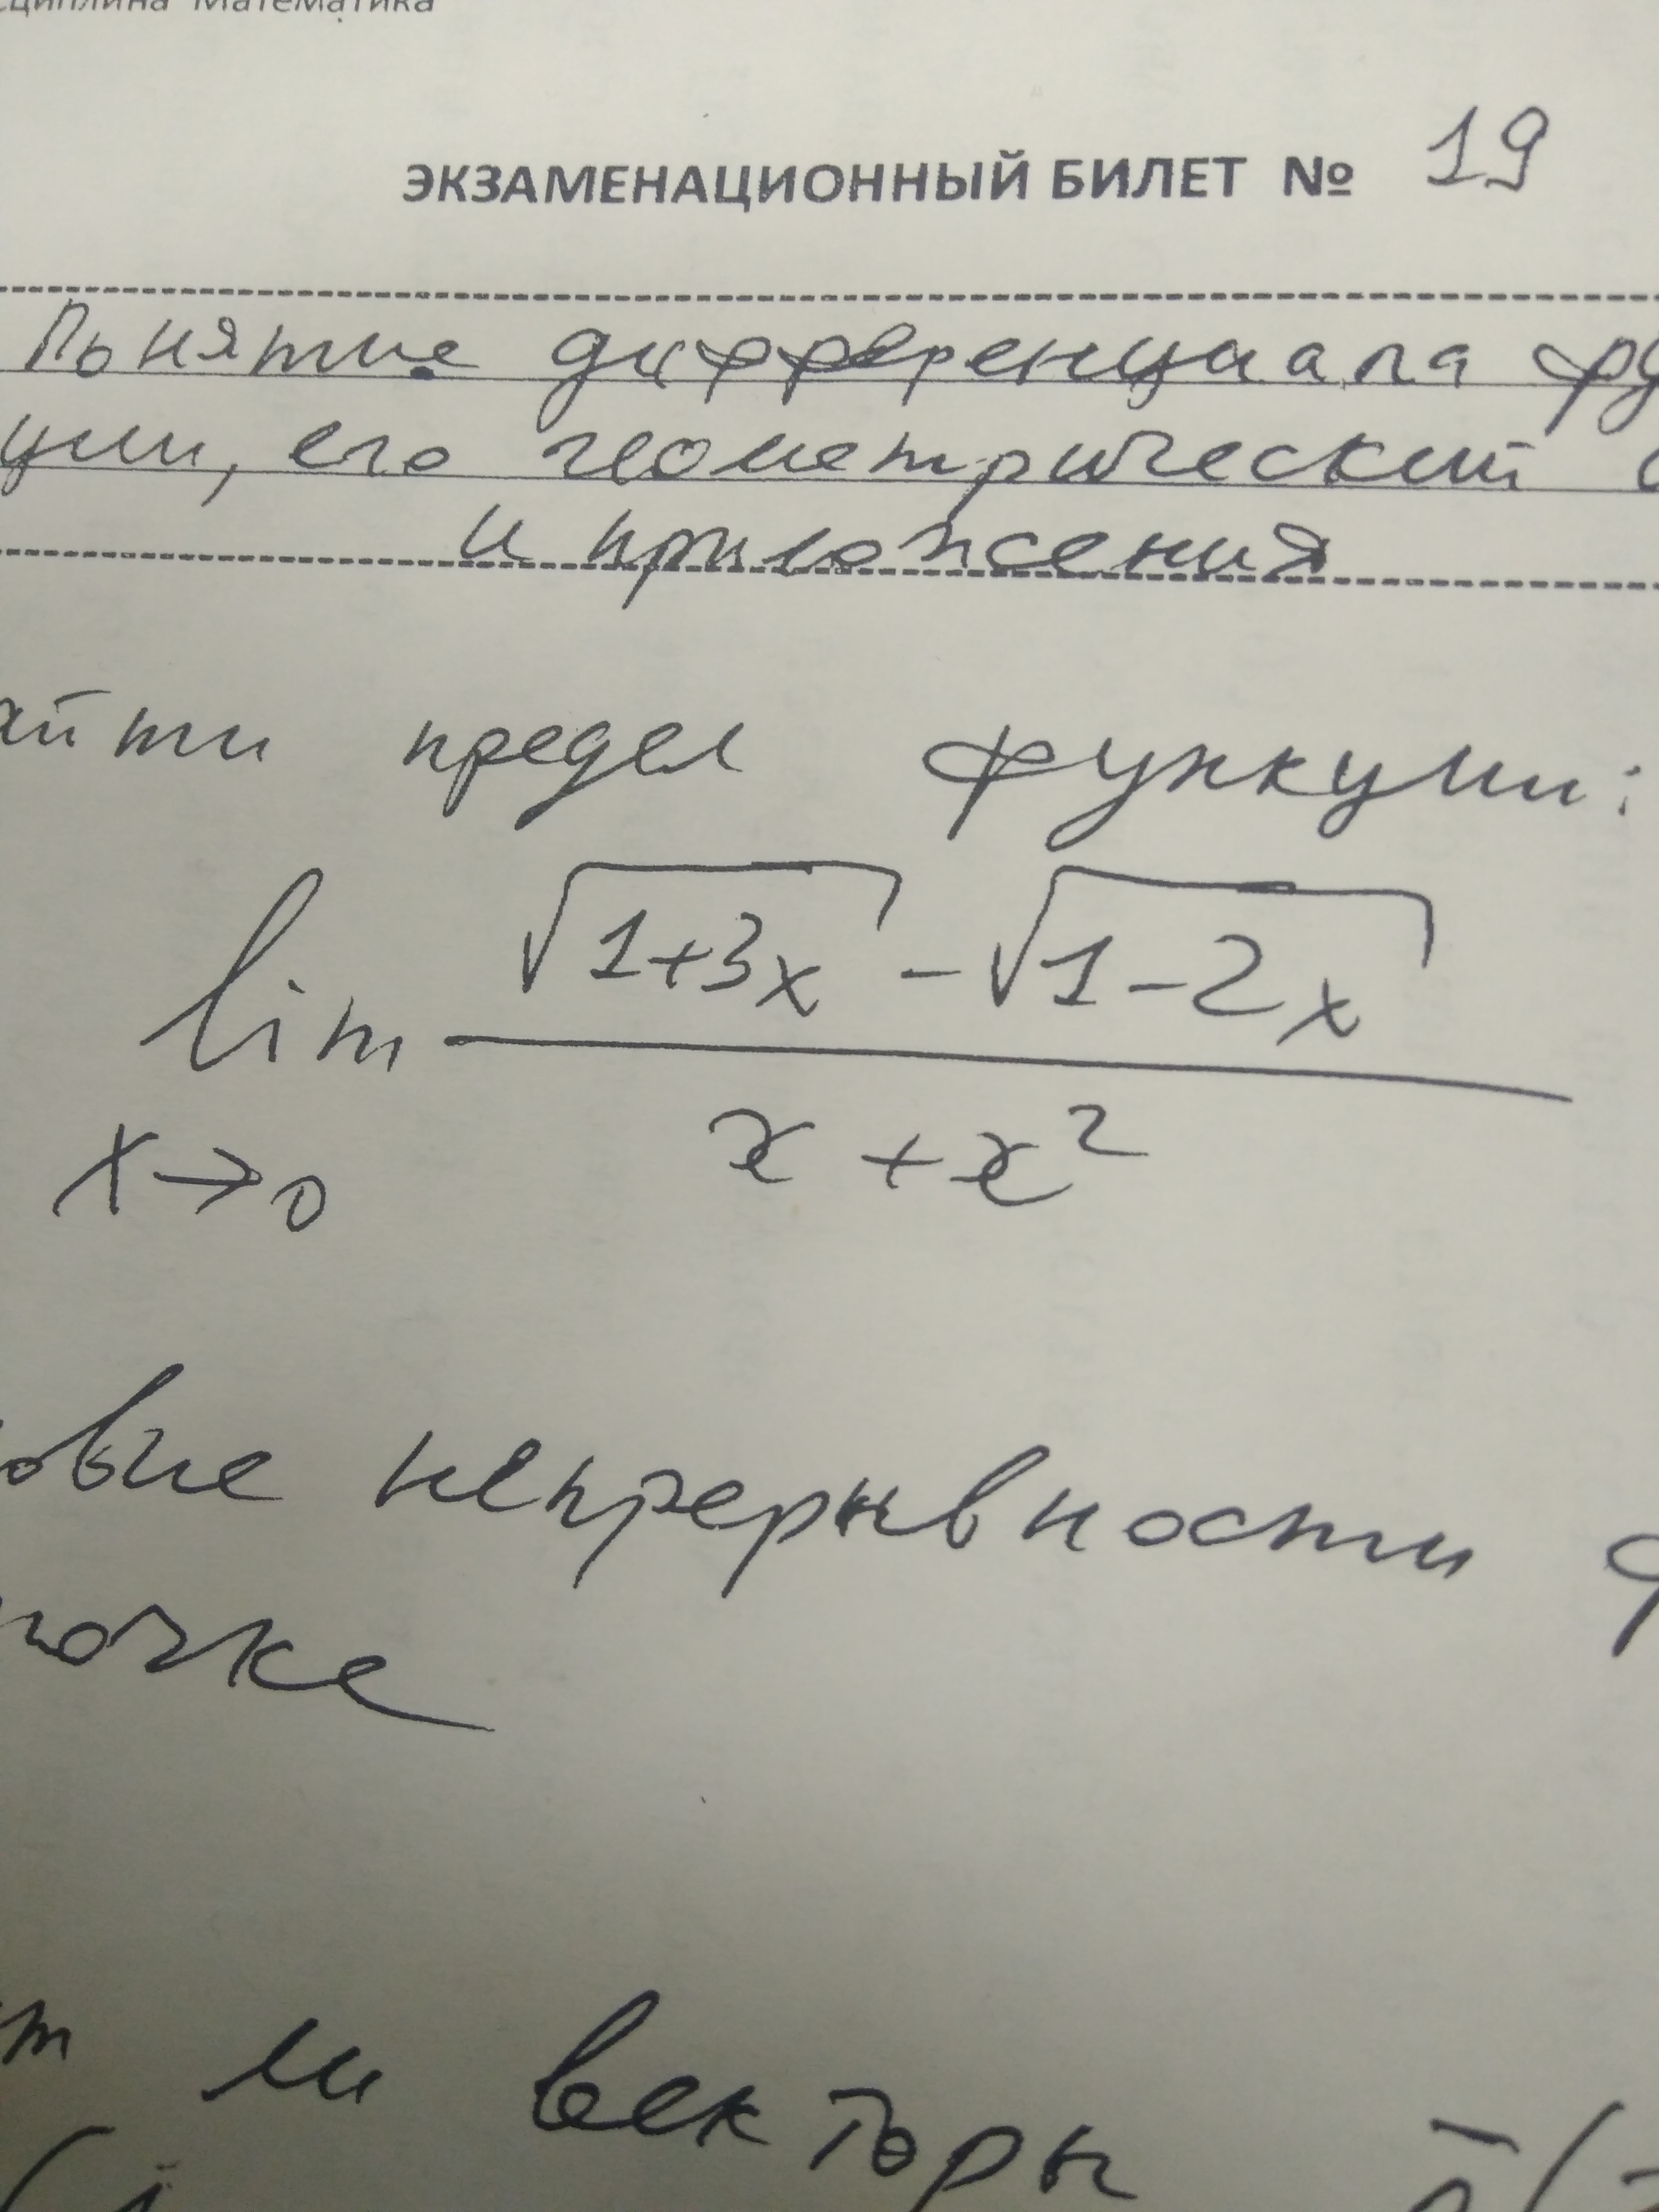 сциплина Математика
ЭКЗАМЕНАЦИОННЫЙ БИЛЕТ № 19
Понятие дифференциала фу
ции, его геометрический с
и приложения
айти предел функции:
lim (√(1+3x) - √(1-2x)) / (x + x²)
x→0
овие непрерывности ф
точке
т ли векторы